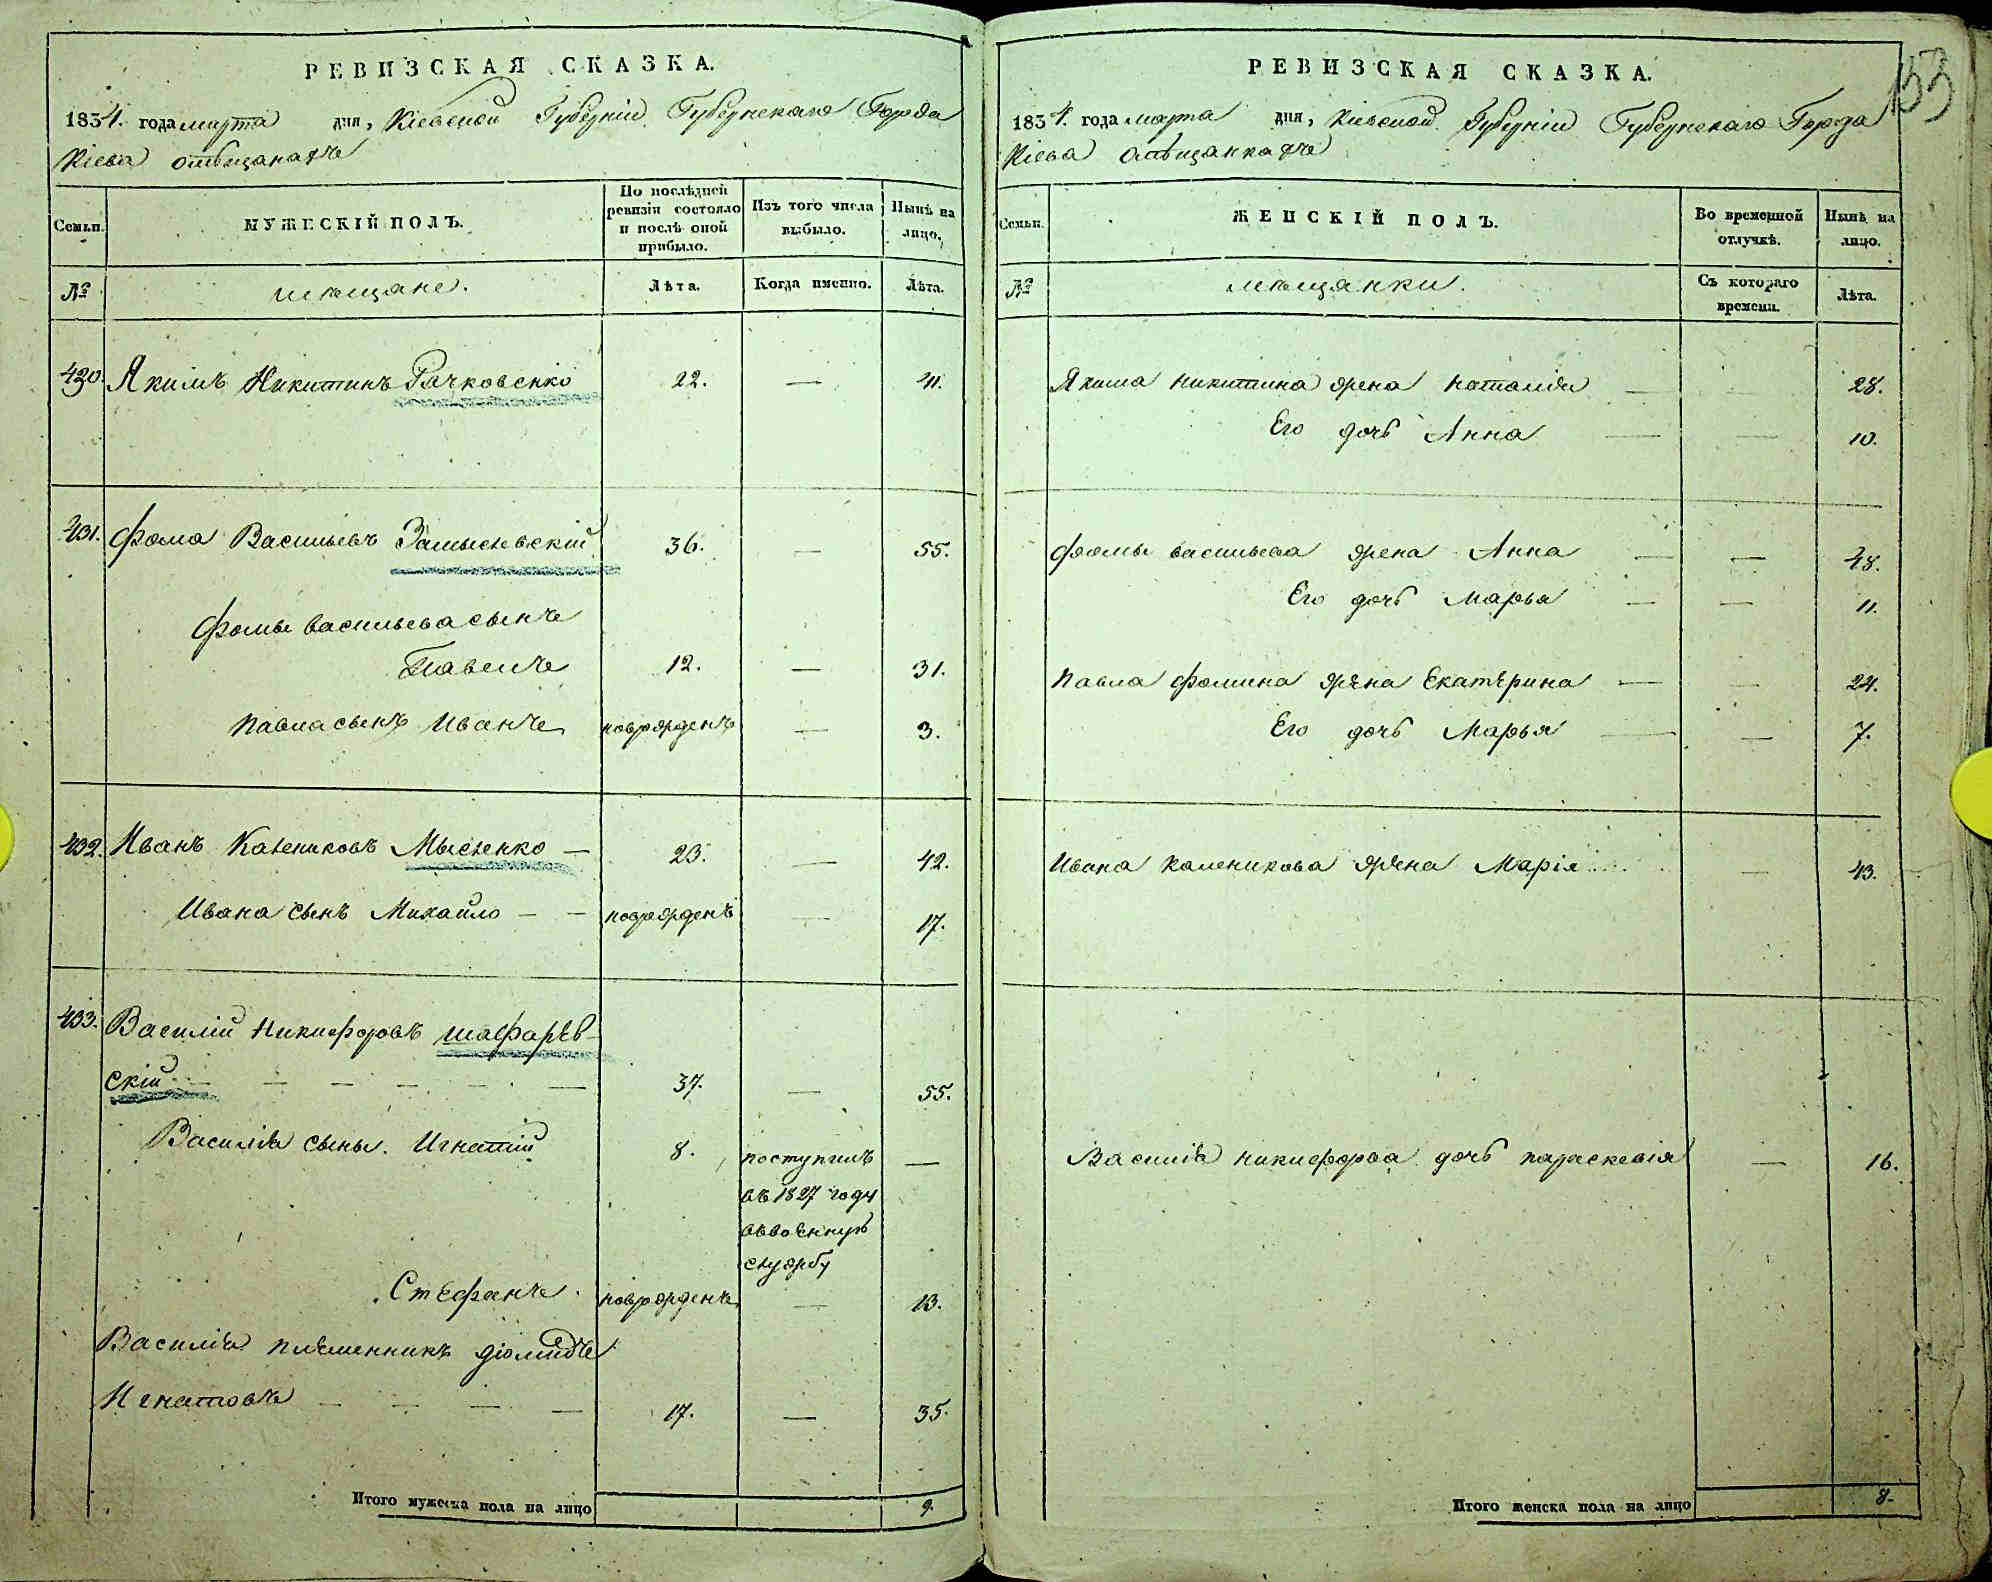 РЕВИЗСКАЯ СКАЗКА.
1834. года марта дня, Кіевской Губерніи Губернскаго Города
Кіева омѣщанахъ
Семьи.
МУЖЕСКІЙ ПОЛЪ.
По послѣдней ревизіи состояло и послѣ оной прибыло.
Изъ того числа выбыло.
Нынѣ на лицо.
№
мѣщане.
Лѣта.
Когда имянно.
Лѣта.
430. Якимъ Никитинъ Рачковенко 22. — 41.
431. Фома Васильевъ Замысловскій 36. — 55.
Фомы васильева сынъ
Павелъ 12. — 31.
Павла сынъ Иванъ новрожденъ — 3.
432. Иванъ Калениковъ Мысенко — 23. — 42.
Ивана сынъ Михайло — — новрожденъ — 17.
433. Василій Никифоровъ шафарев-
скій — — — — — — 37. — 55.
Василія сыны. Игнатій 8. поступилъ —
въ 1827 году
ввоенную
службу
Стефанъ. новрожденъ — 13.
Василія племенникъ діомидъ
Игнатовъ — — — — 17. — 35.
Итого мужеска пола на лицо 9.
153
РЕВИЗСКАЯ СКАЗКА.
1834. года марта дня, Кіевской Губерніи Губернскаго Города
Кіева омѣщанкахъ
Семьи.
ЖЕНСКІЙ ПОЛЪ.
Во временной отлучкѣ.
Нынѣ на лицо.
№
мѣщанки.
Съ котораго времени.
Лѣта.
Якима никитина жена наталія — — 28.
Его дочь Анна — — 10.
Фомы васильева жена Анна — — 48.
Его дочь Марья — — 11.
Павла фомина жена Екатерина — — 24.
Его дочь Марья — — 7.
Ивана каленикова жена Марія — 43.
Василія никифорва дочь параскевія — 16.
Итого женска пола на лицо 8.